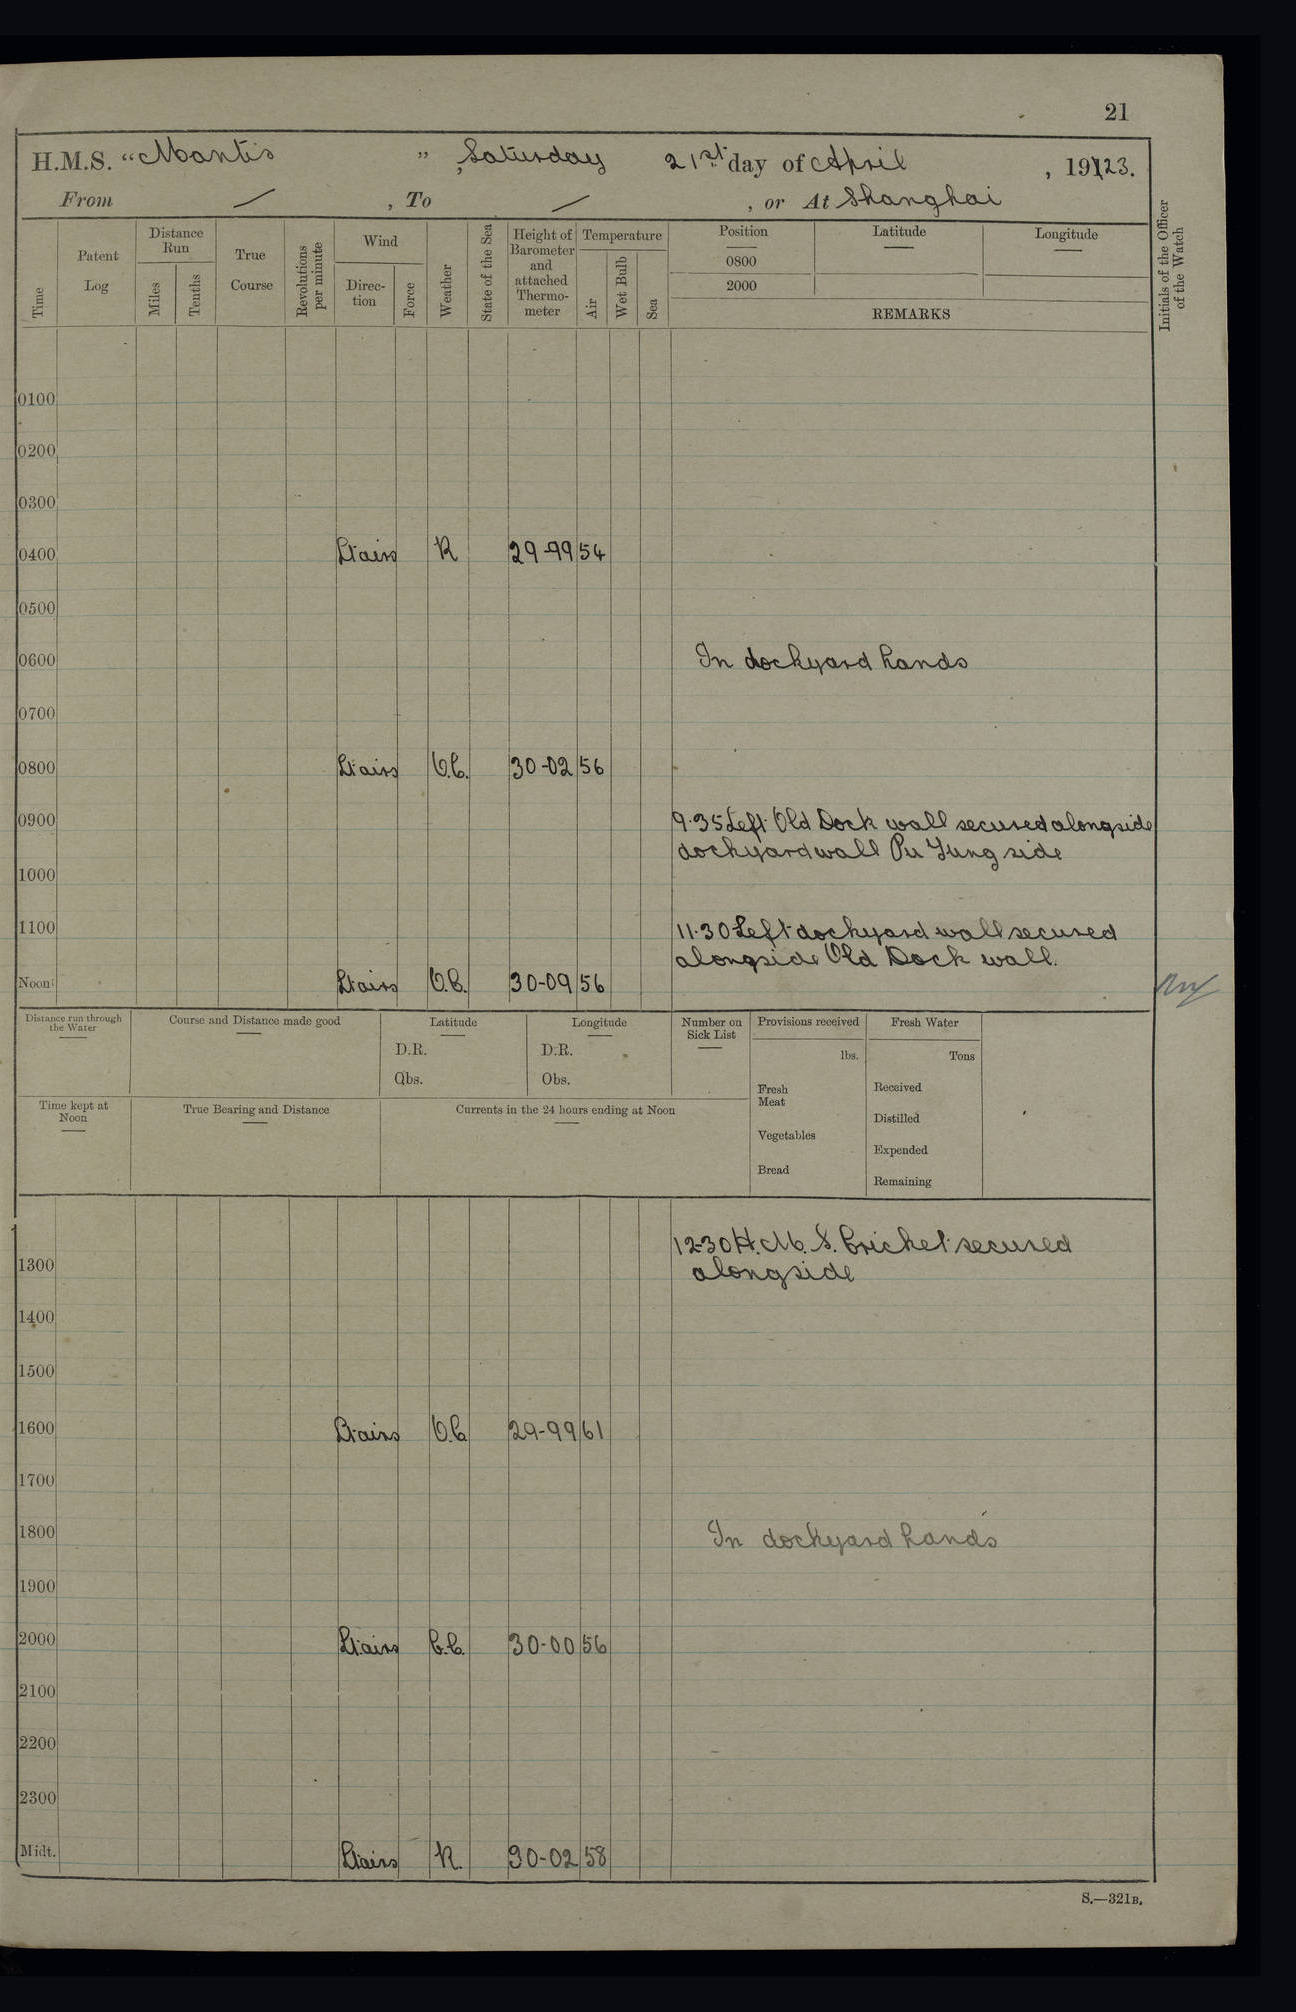 21
H.M.S. "Mantis", Saturday 21st day of April, 1923.
From / , To / , or At Shanghai
Time
Patent Log
Distance Run
Miles
Tenths
True Course
Revolutions per minute
Wind
Direction
Force
Weather
State of the Sea
Height of Barometer and attached Thermometer
Temperature
Air
Wet Bulb
Sea
Position
0800
2000
Latitude
Longitude
REMARKS
Initials of the Officer of the Watch
0100
0200
0300
0400 Lt airs R 29-99 54
0500
0600 In dockyard hands
0700
0800 Lt airs O.C. 30-02 56
0900 9.35 Left Old Dock wall secured alongside
dockyard wall Pu Tung side
1000
1100 11.30 Left dockyard wall secured
alongside Old Dock wall.
Noon Lt airs O.C. 30-09 56
Distance run through the Water
Course and Distance made good
Latitude
D.R.
Obs.
Longitude
D.R.
Obs.
Number on Sick List
Provisions received
lbs.
Fresh Meat
Vegetables
Bread
Fresh Water
Tons
Received
Distilled
Expended
Remaining
Time kept at Noon
True Bearing and Distance
Currents in the 24 hours ending at Noon
12-30 H.M.S. Cricket secured
1300 alongside
1400
1500
1600 Lt airs O.C. 29-99 61
1700
1800 In dockyard hands
1900
2000 Lt airs b.c. 30-00 56
2100
2200
2300
Midt. Lt airs R. 30-02 58
S.—321B.